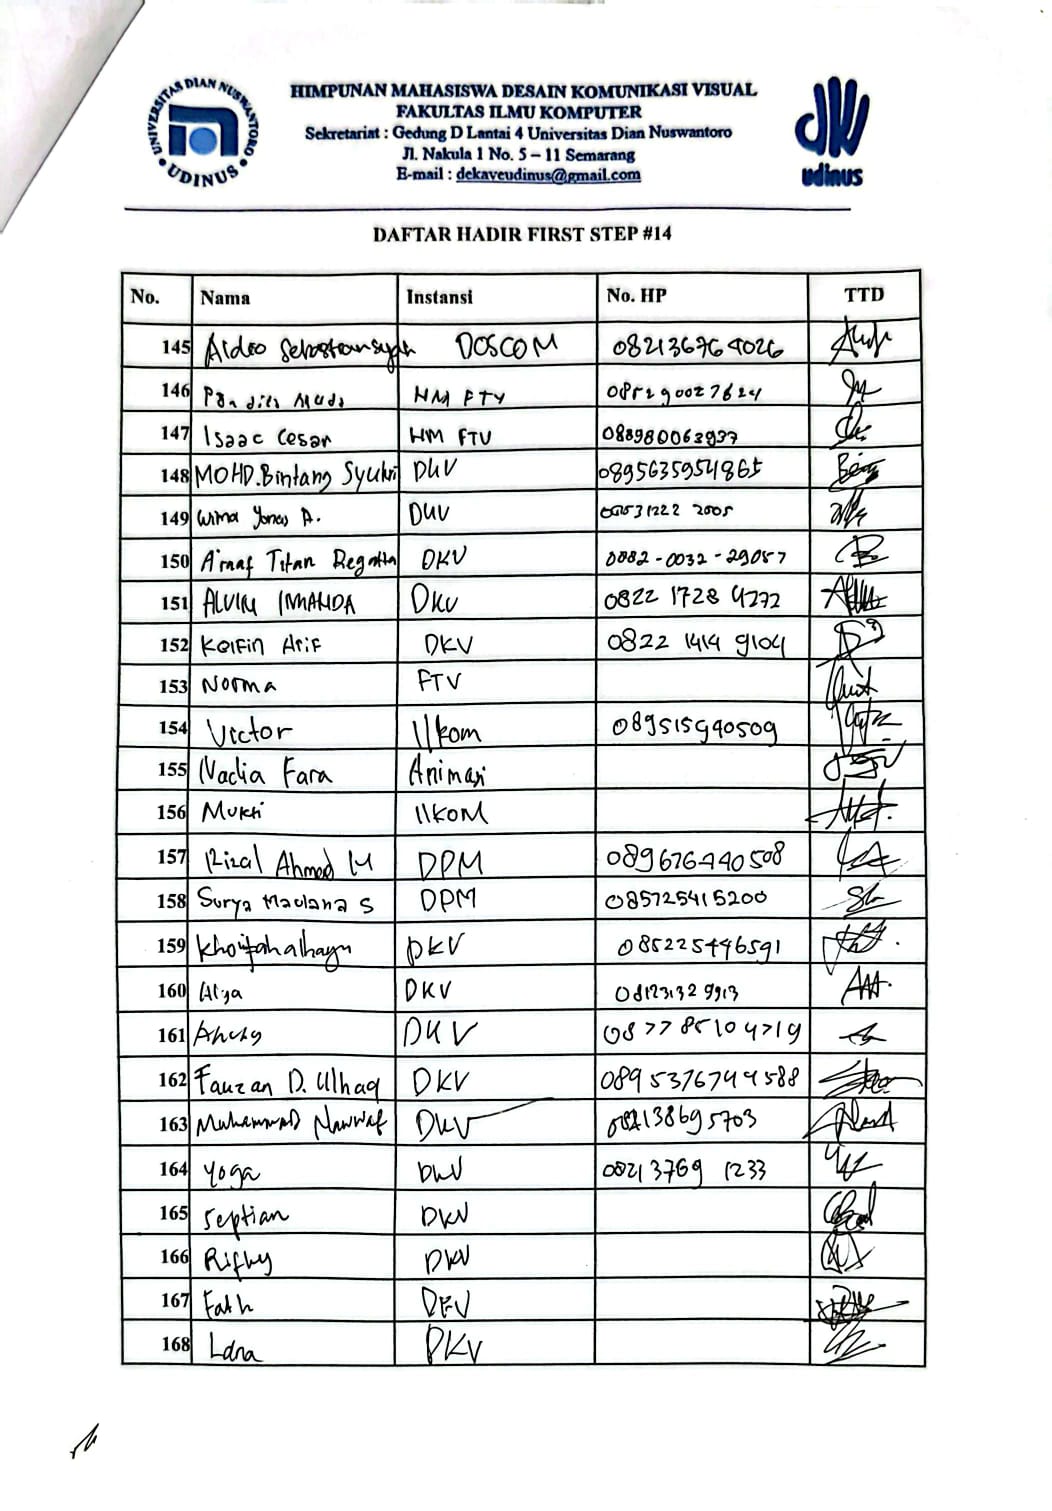 UNIVERSITAS DIAN NUSWANTORO
UDINUS
HIMPUNAN MAHASISWA DESAIN KOMUNIKASI VISUAL
FAKULTAS ILMU KOMPUTER
Sekretariat : Gedung D Lantai 4 Universitas Dian Nuswantoro
Jl. Nakula 1 No. 5 – 11 Semarang
E-mail : dekaveudinus@gmail.com
udinus
DAFTAR HADIR FIRST STEP #14
No. Nama Instansi No. HP TTD
145 Sebastiansyah DOSCOM 082136764026
146 HM FTV 085290027624
147 Isaac Cesar HM FTV 088980063937
148 MOHD.Bintang Syukri DKV 0895635954865
149 Wima Yonas A. DKV
150 Titan DKV 0882-0032-29057
151 ALVIN DKV 0822 1728 4272
152 Kelfin Arif DKV 0822 1414 9104
153 Norma FTV
154 Victor Ilkom 089515940509
155 Nadia Fara Animasi
156 Mukti IlKOM
157 Rizal Ahmad M DPM 089676440508
158 Surya Maulana S DPM 085725415200
159 DKV 085225446591
160 Alya DKV
161 DKV 087785104719
162 Fauzan D. Ulhaq DKV 0895376744588
163 Muhammad Nawwaf DKV
164 Yoga DKV 08213769 1233
165 Septian DKV
166 Rifky DKV
167 Fatih DKV
168 DKV